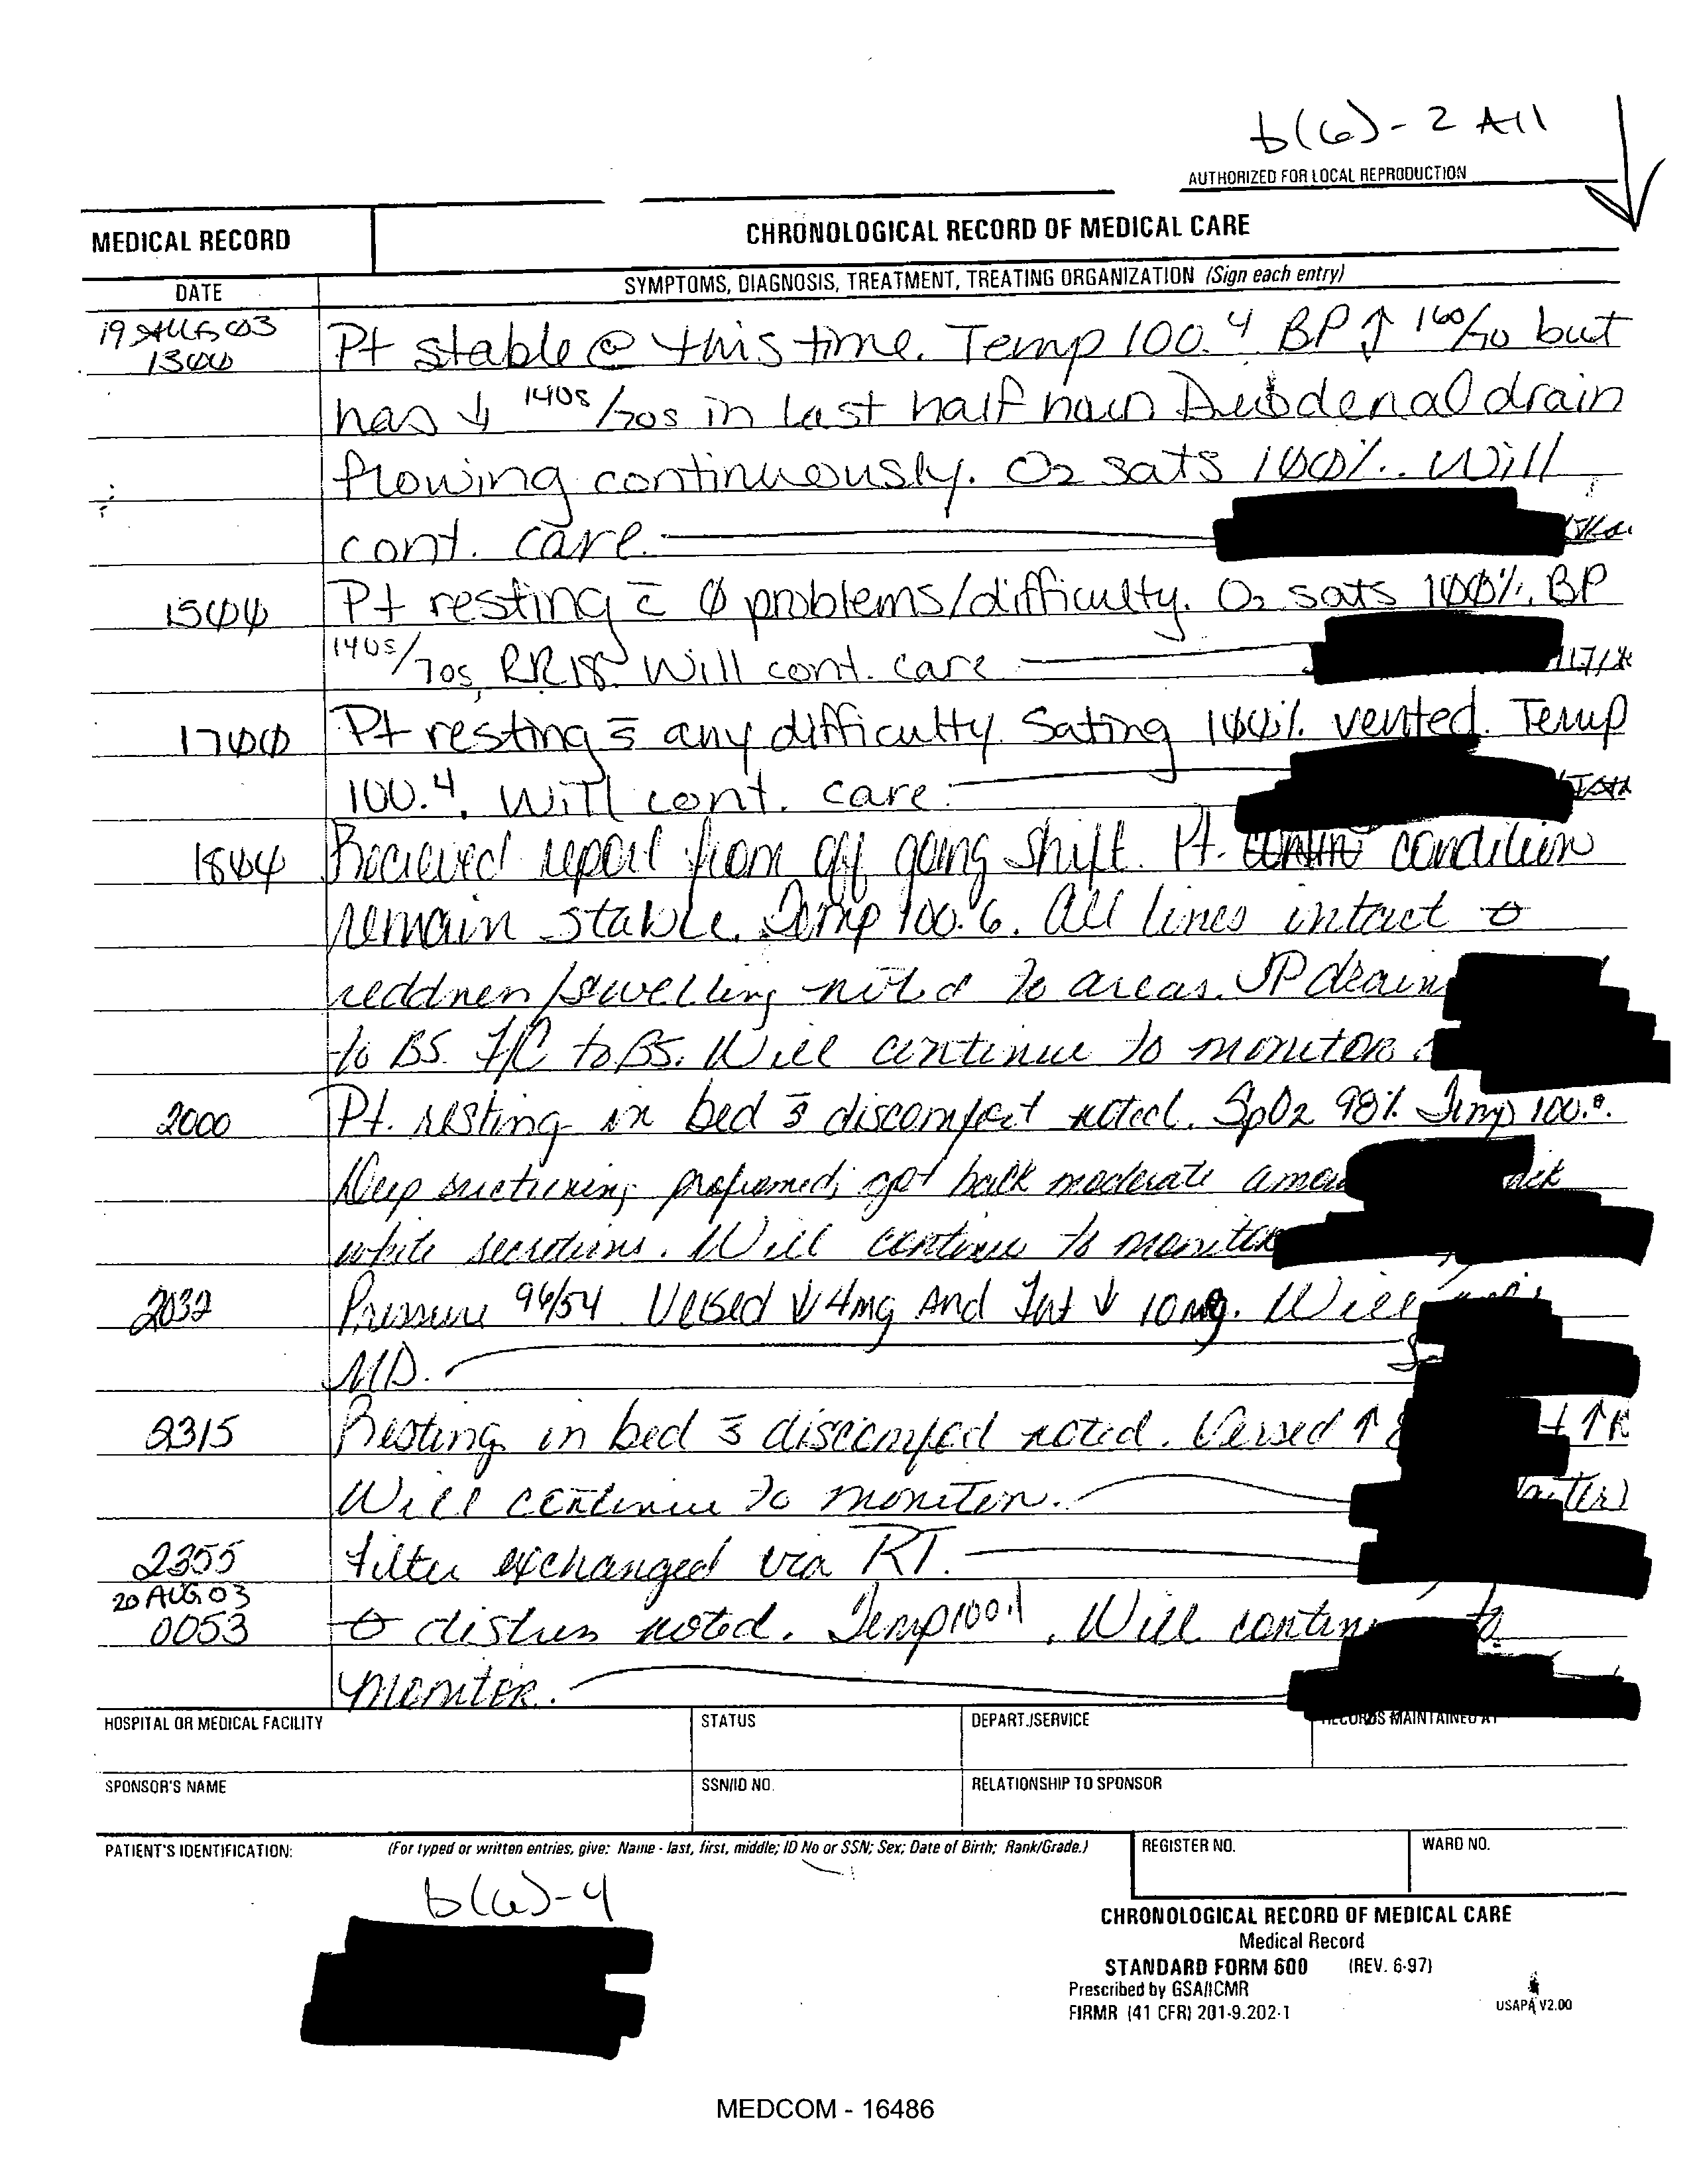 b(6)-2 All
AUTHORIZED FOR LOCAL REPRODUCTION
MEDICAL RECORD
CHRONOLOGICAL RECORD OF MEDICAL CARE
DATE
SYMPTOMS, DIAGNOSIS, TREATMENT, TREATING ORGANIZATION (Sign each entry)
19 AUG 03
1300 Pt stable @ this time. Temp 100.4 BP ↑ 160/70 but
has ↓ 140s/70s in last half hour drain
flowing continuously. O2 sats 100%. Will
cont. care.
1500 Pt resting c̄ Ø problems/difficulty. O2 sats 100%, BP
140s/70s, RR18. Will cont. care
1700 Pt resting s̄ any difficulty. Sating 100% vented. Temp
100.4. Will cont. care.
1800 Recieved report from off going shift. Pt. condition
remain stable. Temp 100.6. All lines intact Ø
reddnen/swelling noted to areas. JP drain
to BS. F/C to BS. Will continue to monitor
2000 Pt. resting in bed s̄ discomfort noted. SpO2 98% Temp 100.8.
Deep suctioning preformed; got back moderate
white secretions. Will continue to monitor
2032 Pressure 96/54 Versed ↓ 4mg And ↓ 10 mg. Will
MD.
2315 Resting in bed s̄ discomfort noted. Versed ↑
Will continue to monitor.
2355 Filter exchanged via RT.
20 AUG 03
0053 Ø distress noted. Temp 100.1. Will contin to
monitor.
HOSPITAL OR MEDICAL FACILITY
STATUS
DEPART./SERVICE
RECORDS MAINTAINED AT
SPONSOR'S NAME
SSN/ID NO.
RELATIONSHIP TO SPONSOR
PATIENT'S IDENTIFICATION:
(For typed or written entries, give: Name - last, first, middle; ID No or SSN; Sex; Date of Birth; Rank/Grade.)
REGISTER NO.
WARD NO.
b(6)-4
CHRONOLOGICAL RECORD OF MEDICAL CARE
Medical Record
STANDARD FORM 600 (REV. 6-97)
Prescribed by GSA/ICMR
FIRMR (41 CFR) 201-9.202-1
USAPA V2.00
MEDCOM - 16486